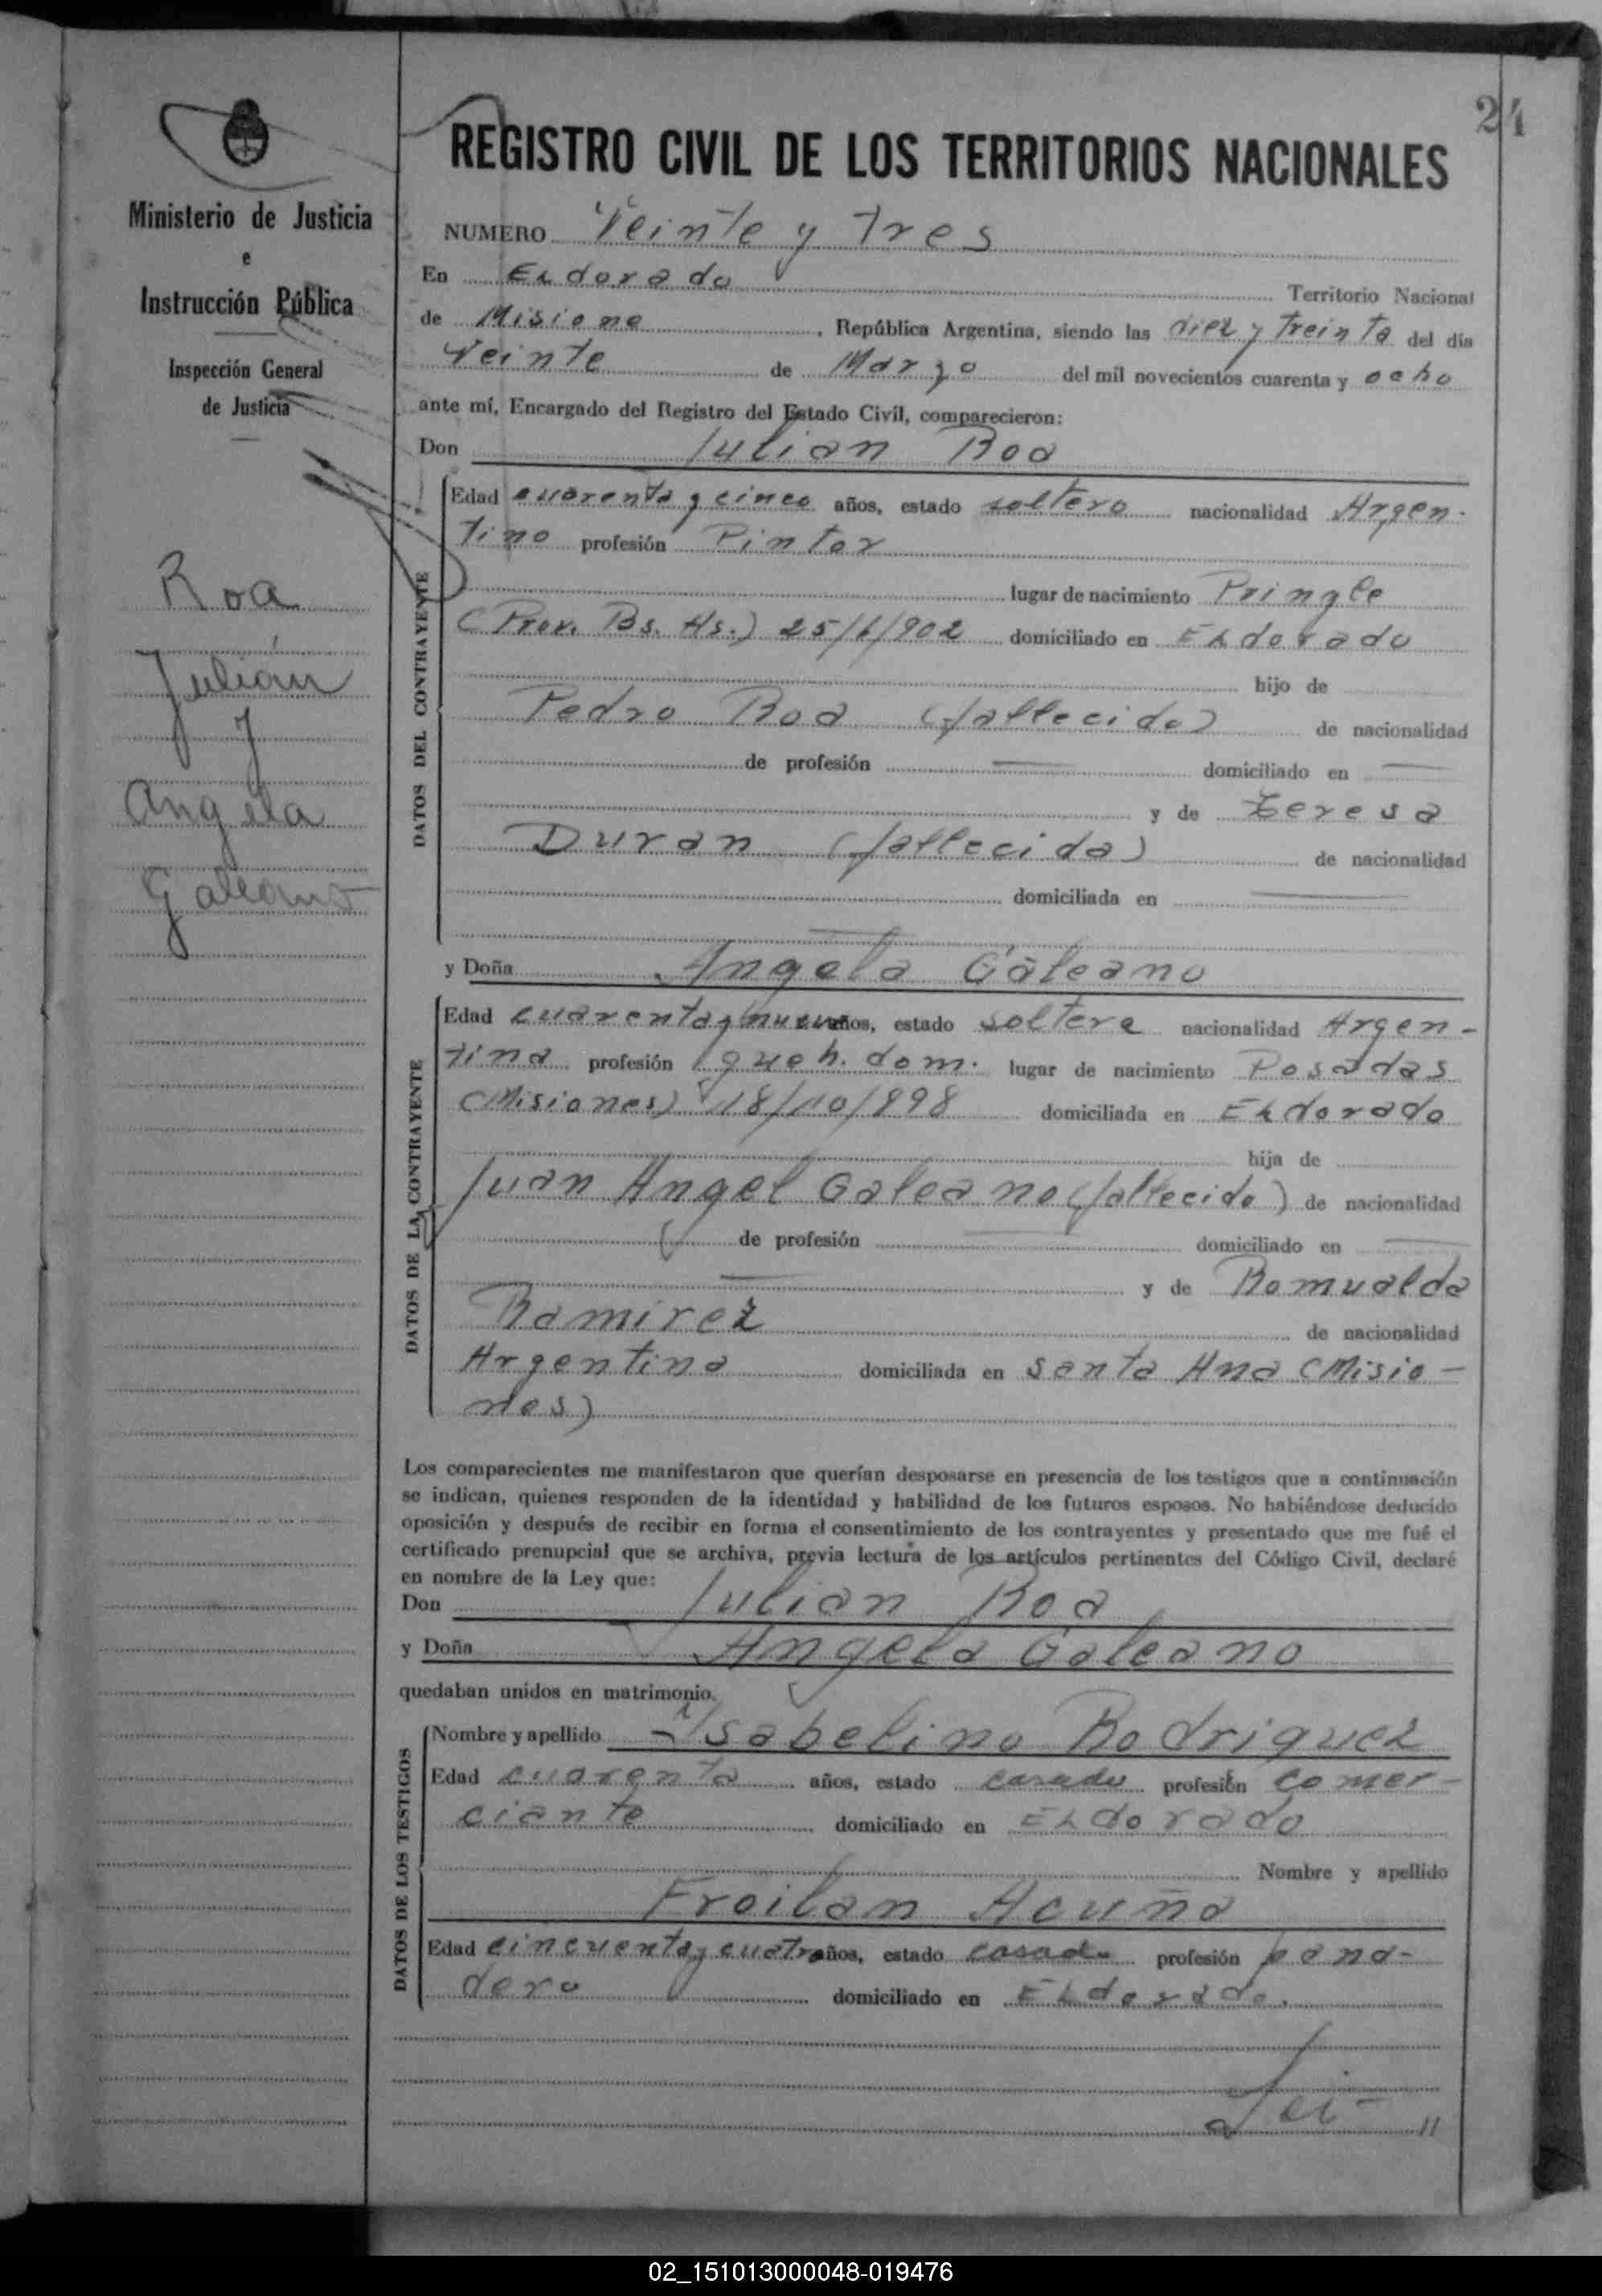 24
Ministerio de Justicia
e
Instrucción Pública
Inspección General
de Justicia
Roa
Julián
y
Angela
Galeano
REGISTRO CIVIL DE LOS TERRITORIOS NACIONALES
NUMERO Veinte y Tres
En Eldorado Territorio Nacional
de Misione, República Argentina, siendo las diez y treinta del día
Veinte de Marzo del mil novecientos cuarenta y ocho
ante mí, Encargado del Registro del Estado Civil, comparecieron:
Don Julian Roa
DATOS DEL CONTRAYENTE
Edad cuarenta y cinco años, estado soltero nacionalidad Argen-
tino profesión Pintor
lugar de nacimiento Pringle
(Prov. Bs. As.) 25/6/902 domiciliado en Eldorado
hijo de
Pedro Roa (fallecido) de nacionalidad
de profesión — domiciliado en —
y de Teresa
Duran (fallecida) de nacionalidad
domiciliada en —
y Doña Angela Galeano
DATOS DE LA CONTRAYENTE
Edad cuarenta y nueve años, estado soltera nacionalidad Argen-
tina profesión queh. dom. lugar de nacimiento Posadas
(Misiones) 18/10/898 domiciliada en Eldorado
hija de
Juan Angel Galeano (fallecido) de nacionalidad
de profesión — domiciliado en —
— y de Romualda
Ramirez de nacionalidad
Argentina domiciliada en Santa Ana (Misio-
nes)
Los comparecientes me manifestaron que querían desposarse en presencia de los testigos que a continuación
se indican, quienes responden de la identidad y habilidad de los futuros esposos. No habiéndose deducido
oposición y después de recibir en forma el consentimiento de los contrayentes y presentado que me fué el
certificado prenupcial que se archiva, previa lectura de los artículos pertinentes del Código Civil, declaré
en nombre de la Ley que:
Don Julian Roa
y Doña Angela Galeano
quedaban unidos en matrimonio.
DATOS DE LOS TESTIGOS
Nombre y apellido Ysabelino Rodriguez
Edad cuarenta años, estado casado profesión comer-
ciante domiciliado en Eldorado
Nombre y apellido
Froilan Acuña
Edad cincuenta y cuatro años, estado casado profesión pana-
dero domiciliado en Eldorado.
02_151013000048-019476